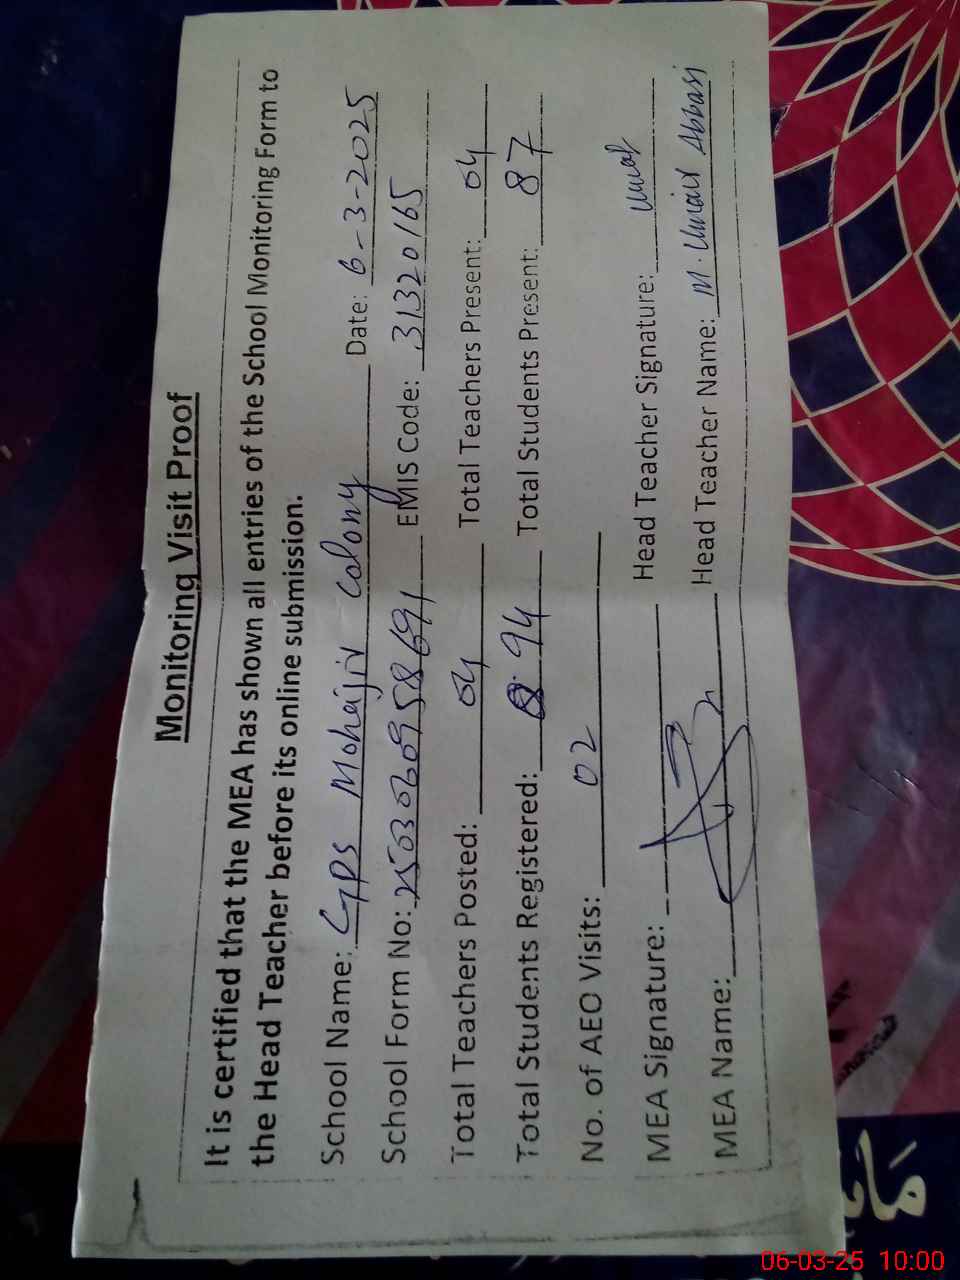 Monitoring Visit Proof
It is certified that the MEA has shown all entries of the School Monitoring Form to
the Head Teacher before its online submission.
School Name: GPS Mohajir Colony Date: 6-3-2025
School Form No: EMIS Code: 31320165
Total Teachers Posted: 04 Total Teachers Present: 04
Total Students Registered: 94 Total Students Present: 87
No. of AEO Visits: 02
MEA Signature: Head Teacher Signature:
MEA Name: Head Teacher Name: M. Umair Abbasi
06-03-25 10:00